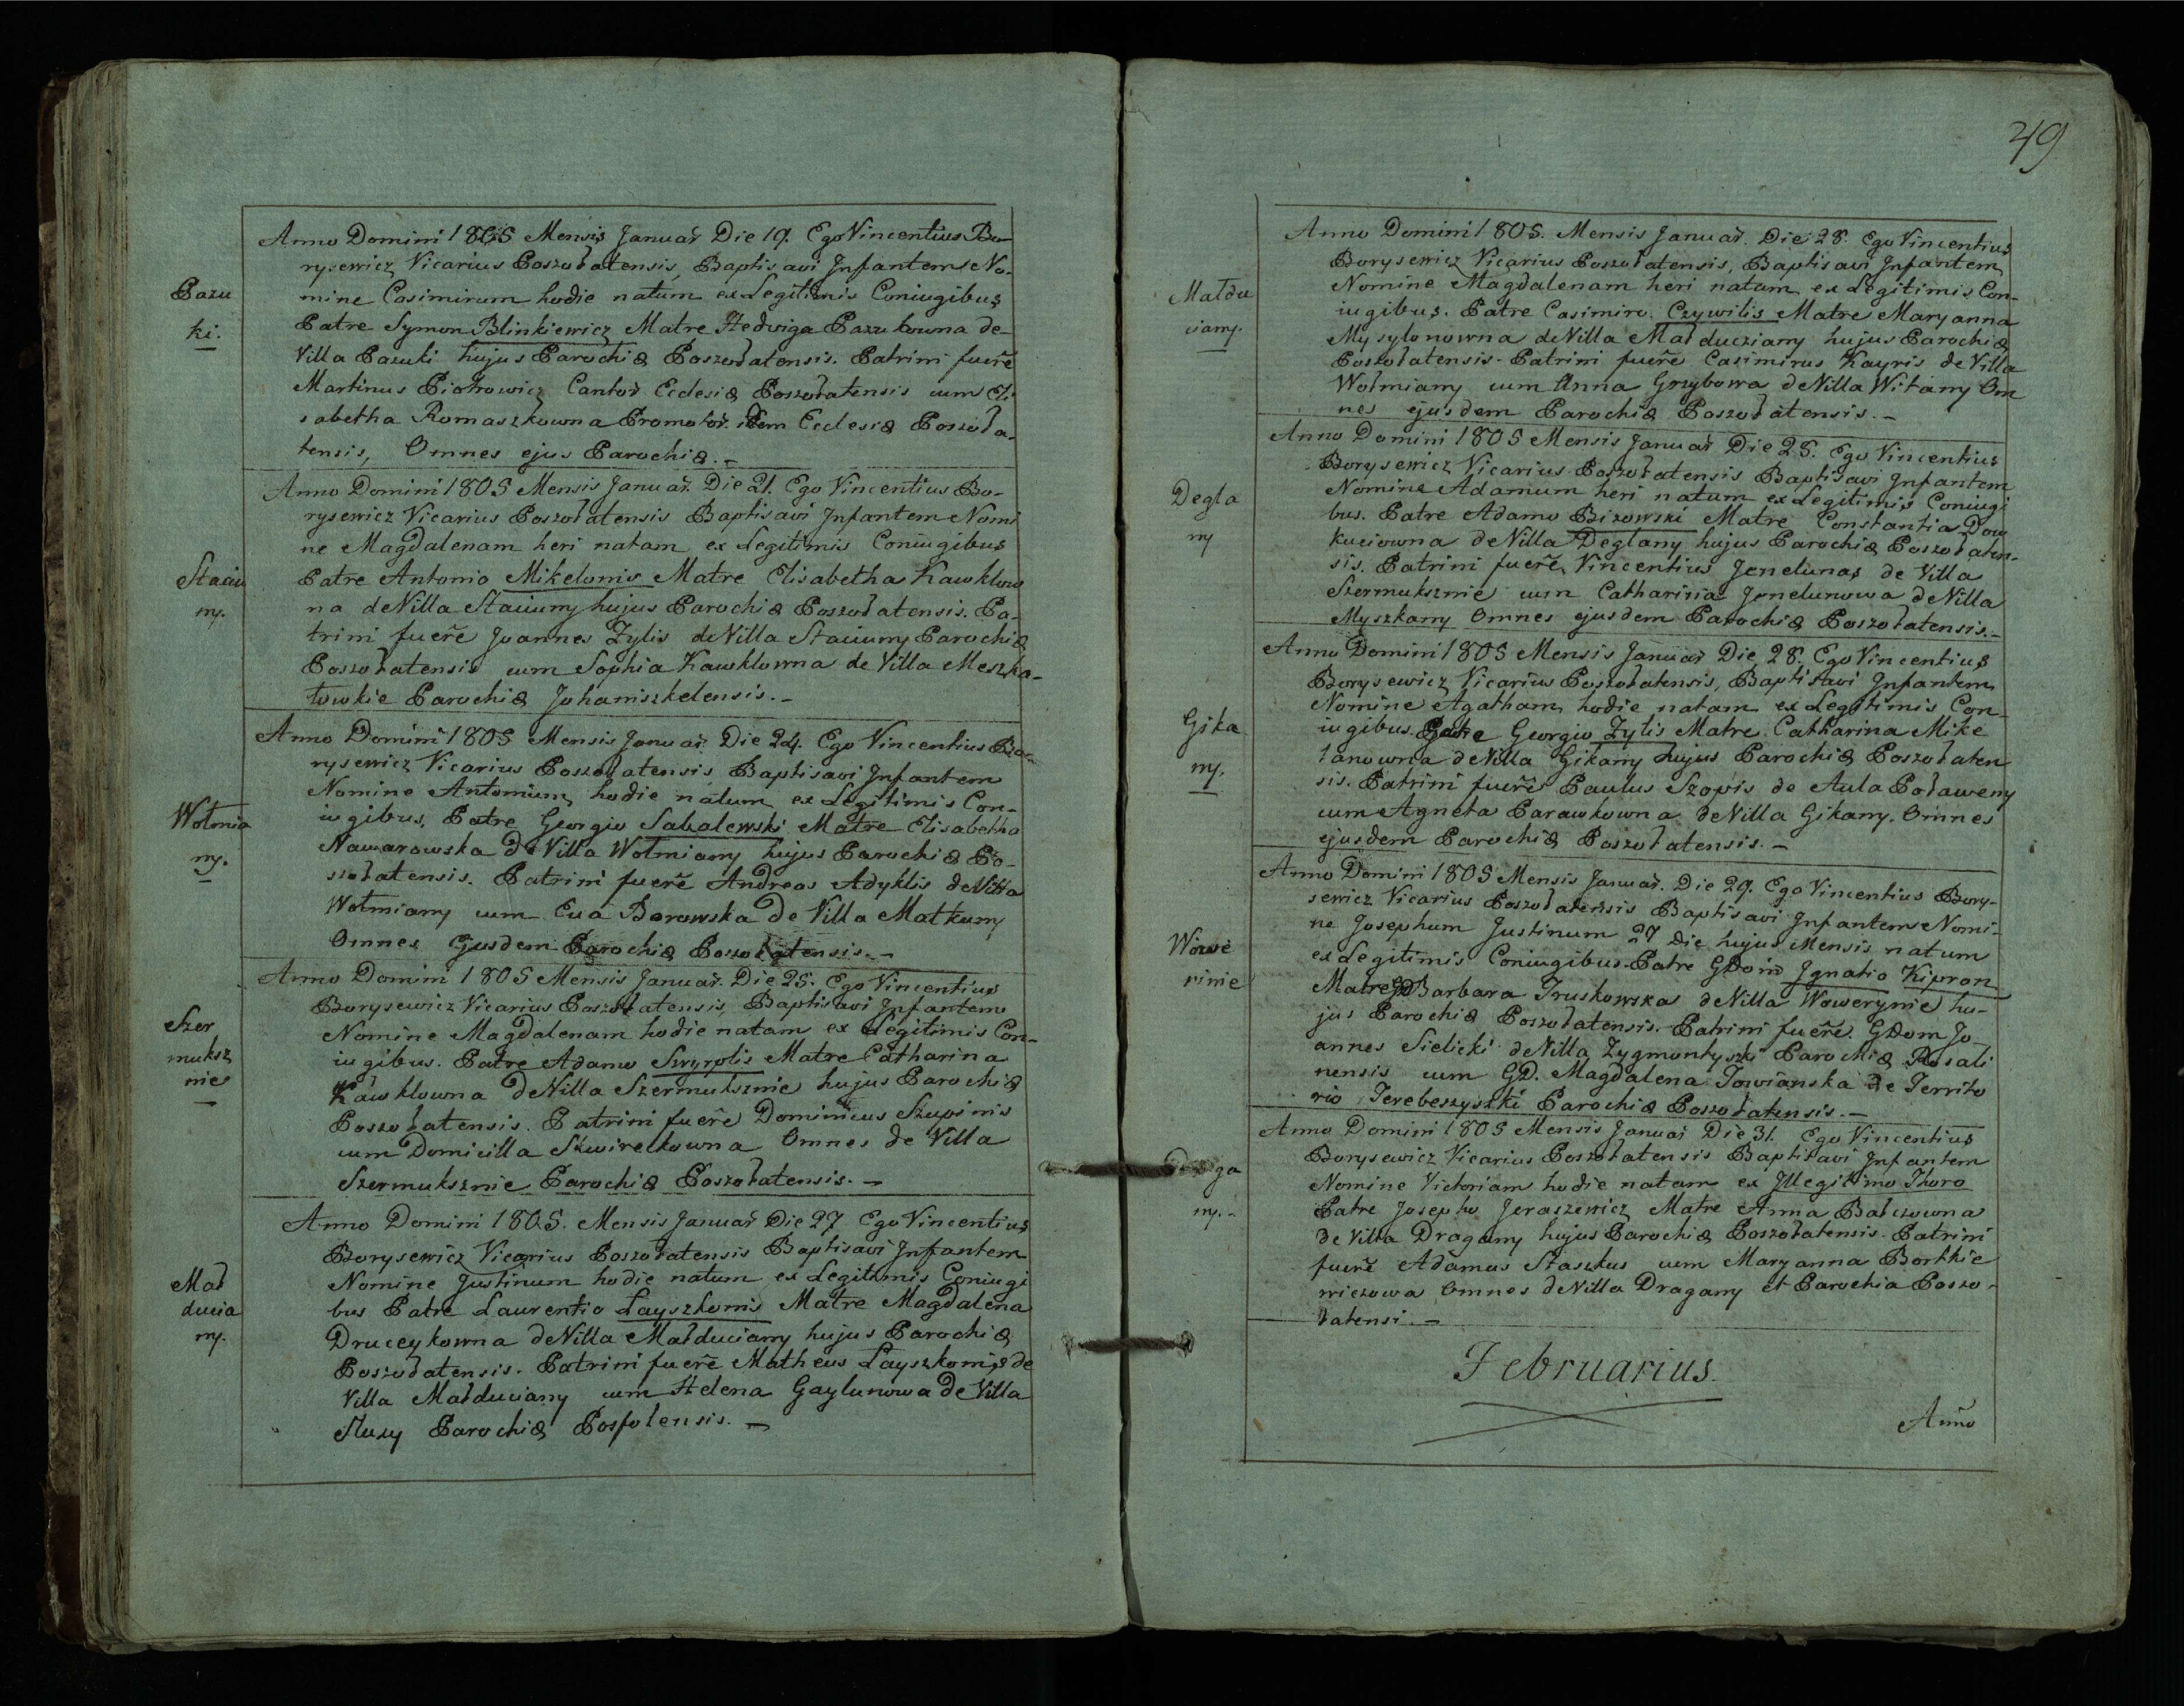 Pazu
ki.
Anno Domini 1805 Mensis Januar Die 19. Ego Vincentius Bo-
rysewicz Vicarius Poszołatensis, Baptisavi Infantem No-
mine Casimirum hodie natum ex Legitimis Coniugibus
Patre Symon Blinkiewicz Matre Hedwiga Pazukowna de
Villa Pazuki hujus Parochiæ Poszołatensis. Patrini fuere
Martinus Piotrowicz Cantor Eclesiæ Poszołatensis cum Eli
sabetha Romaszkowna Promotor. idem Eclesiæ Poszoła-
tensis, Omnes ejus Parochiæ.-
Staciu
ny.
Anno Domini 1805 Mensis Januar. Die 21. Ego Vincentius Bo-
rysewicz Vicarius Poszołatensis Baptisavi Infantem Nomi
ne Magdalenam heri natam ex Legitimis Coniugibus
Patre Antonio Mikelonis Matre Elisabetha Kawklow
na de Villa Staciuny hujus Parochiæ Poszołatensis. Pa-
trini fuere Joannes Zylis de Villa Staciuny Parochiæ
Poszołatensis cum Sophia Kawklowna de Villa Meszka-
łowkie Parochiæ Johaniszkelensis.-
Wołmia
ny.
Anno Domini 1805 Mensis Januar. Die 24. Ego Vincentius Bo-
rysewicz Vicarius Poszołatensis Baptisavi Infantem
Nomine Antonium hodie natum ex Legitimis Con-
iugibus, Patre Georgio Sabalewski Matre Elisabetha
Nawarowska de Villa Wołmiany hujus Parochiæ Po-
szołatensis. Patrini fuere Andreas Adyklis de Villa
Wołmiany cum Eva Borowska de Villa Małkuny
Omnes Ejusdem Parochiæ Poszołatensis.-
Szer
muksz
nie
Anno Domini 1805 Mensis Januar. Die 25. Ego Vincentius
Borysewicz Vicarius Poszołatensis, Baptisavi Infantem
Nomine Magdalenam hodie natam ex Legitimis Con-
iugibus. Patre Adamo Swyrplis Matre Catharina
Kawklowna de Villa Szermuksznie hujus Parochiæ
Poszołatensis. Patrini fuere Dominicus Szupinis
cum Domicilla Skwirelkowna Omnes de Villa
Szermuksznie Parochiæ Poszołatensis.-
Mał
ducia
ny.
Anno Domini 1805. Mensis Januar Die 27 Ego Vincentius
Borysewicz Vicarius Poszołatensis Baptisavi Infantem
Nomine Justinum hodie natum ex Legitimis Coniugi
bus Patre Laurentio Layszkonis Matre Magdalena
Druceykowna de Villa Małduciany hujus Parochiæ
Poszołatensis. Patrini fuere Matheus Layszkonis de
Villa Małduciany cum Helena Gaylunowa de Villa
Słuzy Parochiæ Posfolensis.-
49
Małdu
ciany.
Anno Domini 1805. Mensis Januar. Die 28. Ego Vincentius
Borysewicz Vicarius Poszołatensis, Baptisavi Infantem
Nomine Magdalenam heri natam ex Legitimis Con-
iugibus. Patre Casimiro Czywilis Matre Maryanna
Mysylonowna de Villa Małducziany hujus Parochiæ
Poszołatensis. Patrini fuere Casimirus Kayris de Villa
Wołmiany cum Anna Grzybowa de Villa Witany Om
nes ejusdem Parochiæ Poszołatensis.-
Degla
ny
Anno Domini 1805 Mensis Januar Die 28. Ego Vincentius
Borysewicz Vicarius Poszołatensis Baptisavi Infantem
Nomine Adamum heri natum ex Legitimis Coniugi
bus. Patre Adamo Bizowski Matre Constantia Dow
kuciowna de Villa Deglany hujus Parochiæ Poszołaten-
sis. Patrini fuere Vincentius Jenelunas de Villa
Szermuksznie cum Catharina Jenelunowa de Villa
Myszkany Omnes ejusdem Parochiæ Poszołatensis.-
Gika
ny.
Anno Domini 1805 Mensis Januar Die 28. Ego Vincentius
Borysewicz Vicarius Poszołatensis, Baptisavi Infantem
Nomine Agatham hodie natam ex Legitimis Con-
iugibus. Patre Georgio Zylis Matre Catharina Mike
lanowna de Villa Gikany hujus Parochiæ Poszołaten
sis. Patrini fuere Paulus Szopis de Aula Poławeny
cum Agneta Parawkowna de Villa Gikany. Omnes
ejusdem Parochiæ Poszołatensis.-
Wowe
rinie
Anno Domini 1805 Mensis Januar. Die 29. Ego Vincentius Bory-
sewicz Vicarius Poszołatensis Baptisavi Infantem Nomi-
ne Josephum Justinum 27 Die hujus Mensis natum
ex Legitimis Coniugibus Patre GDoīn Ignatio Kipron
Matre GD Barbara Truskowska de Villa Wowerynie hu-
jus Parochiæ Poszołatensis. Patrini fuere. GDom Jo-
annes Sielicki de Villa Zygmontyszki Parochiæ Rosali
nensis cum GD. Magdalena Towianska de Territo
rio Terebeszyszki Parochiæ Poszołatensis.-
Draga
ny.-
Anno Domini 1805 Mensis Januar Die 31. Ego Vincentius
Borysewicz Vicarius Poszołatensis Baptisavi Infantem
Nomine Victoriam hodie natam ex Illegitimo Thoro
Patre Josepho Jeraszewicz Matre Anna Balczowna
de Villa Dragany hujus Parochiæ Poszołatensis. Patrini
fuere Adamus Staszkus cum Maryanna Bortkie
wiczowa Omnes de Villa Dragany et Parochia Poszo-
łatensi.-
Februarius.
Anno